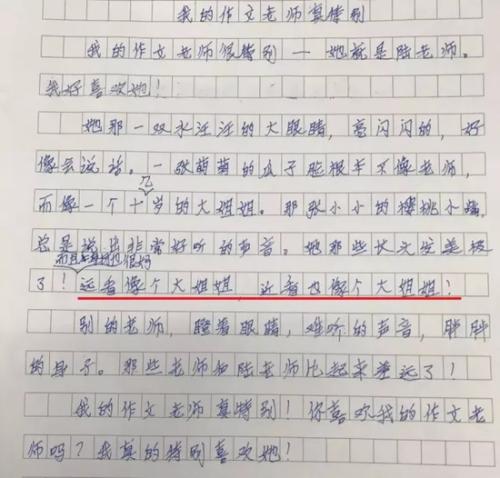 我的作文老师真特别
我的作文老师很特别—她就是陆老师。
我好喜欢她！
她那一双水汪汪的大眼睛，亮闪闪的，好
像会说话。一张萌萌的瓜子脸根本不像老师，
而像一个十几岁的大姐姐。那张小小的樱桃小嘴，
总是说出非常好听的声音。她那些长头发美极
了！而且身材也很好
远看像个大姐姐，近看也像个大姐姐！
别的老师，瞪着眼睛，难听的声音，胖胖
的身子。那些老师和陆老师比起来差远了！
我的作文老师真特别！你喜欢我的作文老
师吗？我真的特别喜欢她！